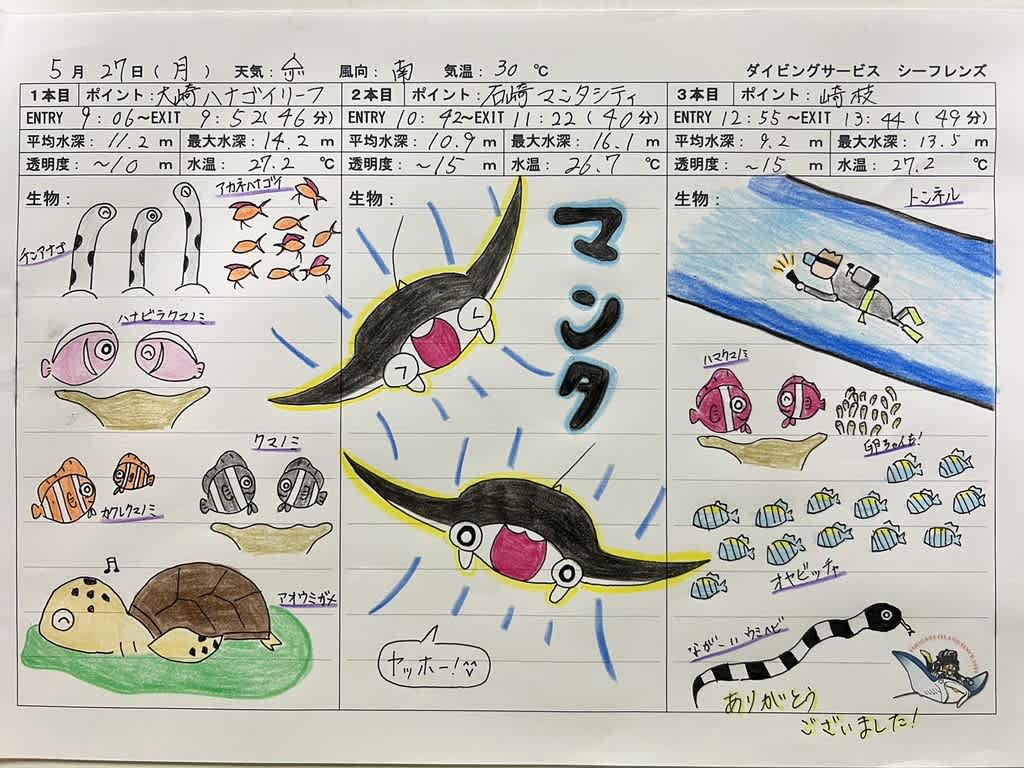 5月27日(月) 天気: 風向:南 気温:30℃ ダイビングサービス シーフレンズ
1本目 ポイント:大崎ハナゴイリーフ
ENTRY 9:06~EXIT 9:52(46分)
平均水深:11.2m 最大水深:14.2m
透明度:~10m 水温:27.2℃
生物:
アカネハナゴイ
チンアナゴ
ハナビラクマノミ
クマノミ
カクレクマノミ
アオウミガメ
2本目 ポイント:石崎マンタシティ
ENTRY 10:42~EXIT 11:22(40分)
平均水深:10.9m 最大水深:16.1m
透明度:~15m 水温:26.7℃
生物:
マンタ
ヤッホー!^^
3本目 ポイント:崎枝
ENTRY 12:55~EXIT 13:44(49分)
平均水深:9.2m 最大水深:13.5m
透明度:~15m 水温:27.2℃
生物:
トンネル
ハマクマノミ
オヤビッチャ
ながーいウミヘビ
ありがとう
ございました!